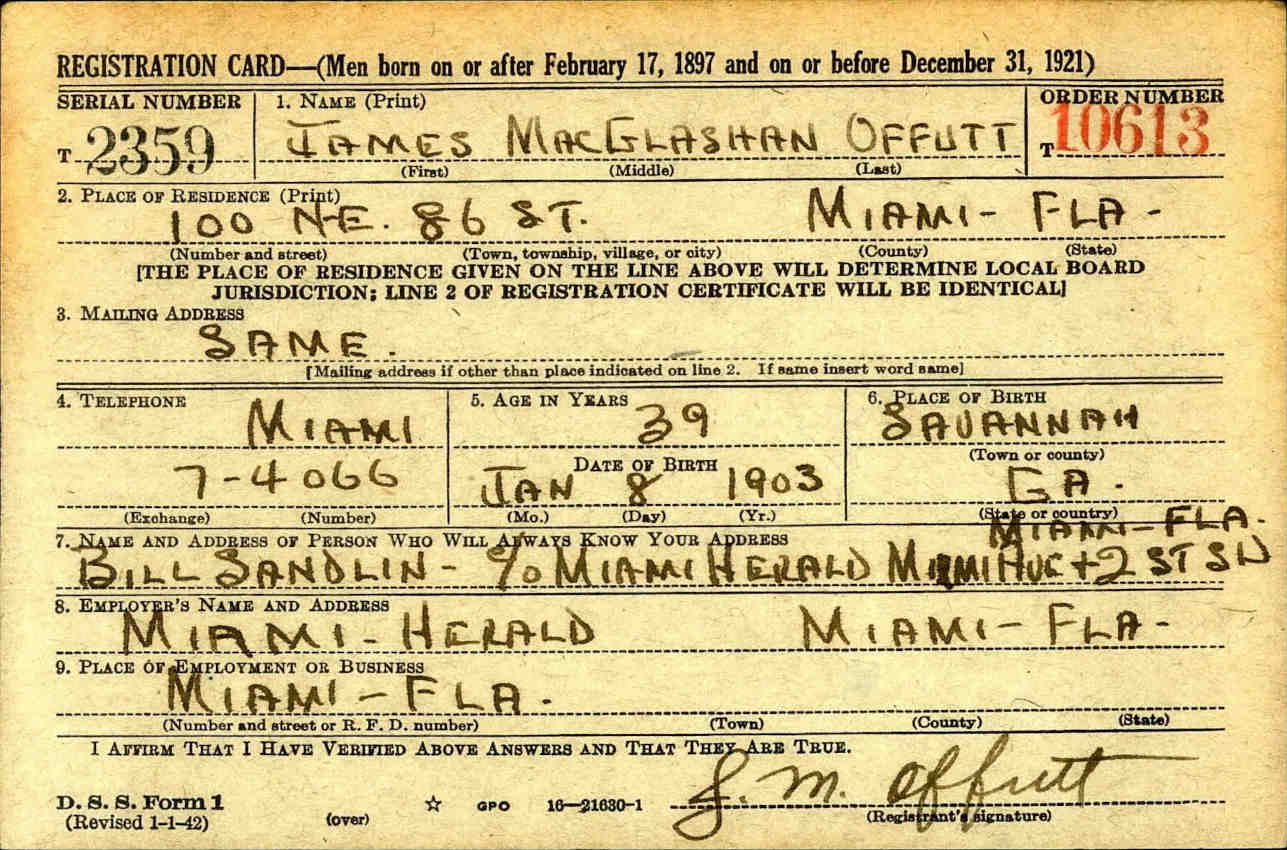 REGISTRATION CARD—(Men born on or after February 17, 1897 and on or before December 31, 1921)
SERIAL NUMBER 1. NAME (Print) ORDER NUMBER
T 2359 JAMES MACGLASHAN OFFUTT T 10613
(First) (Middle) (Last)
2. PLACE OF RESIDENCE (Print)
100 N.E. 86 ST. MIAMI- FLA-
(Number and street) (Town, township, village, or city) (County) (State)
[THE PLACE OF RESIDENCE GIVEN ON THE LINE ABOVE WILL DETERMINE LOCAL BOARD
JURISDICTION; LINE 2 OF REGISTRATION CERTIFICATE WILL BE IDENTICAL]
3. MAILING ADDRESS
SAME.
[Mailing address if other than place indicated on line 2. If same insert word same]
4. TELEPHONE 5. AGE IN YEARS 6. PLACE OF BIRTH
MIAMI 39 SAVANNAH
DATE OF BIRTH (Town or county)
7-4066 JAN 8 1903 GA.
(Exchange) (Number) (Mo.) (Day) (Yr.) (State or country)
MIAMI-FLA.
7. NAME AND ADDRESS OF PERSON WHO WILL ALWAYS KNOW YOUR ADDRESS
BILL SANDLIN- c/o MIAMI HERALD MIAMI AVE + 2 ST SW
8. EMPLOYER'S NAME AND ADDRESS
MIAMI-HERALD MIAMI- FLA-
9. PLACE OF EMPLOYMENT OR BUSINESS
MIAMI-FLA.
(Number and street or R. F. D. number) (Town) (County) (State)
I AFFIRM THAT I HAVE VERIFIED ABOVE ANSWERS AND THAT THEY ARE TRUE.
J. M. Offutt
D. S. S. Form 1 ☆ GPO 16—21630-1
(Revised 1-1-42) (over) (Registrant's signature)